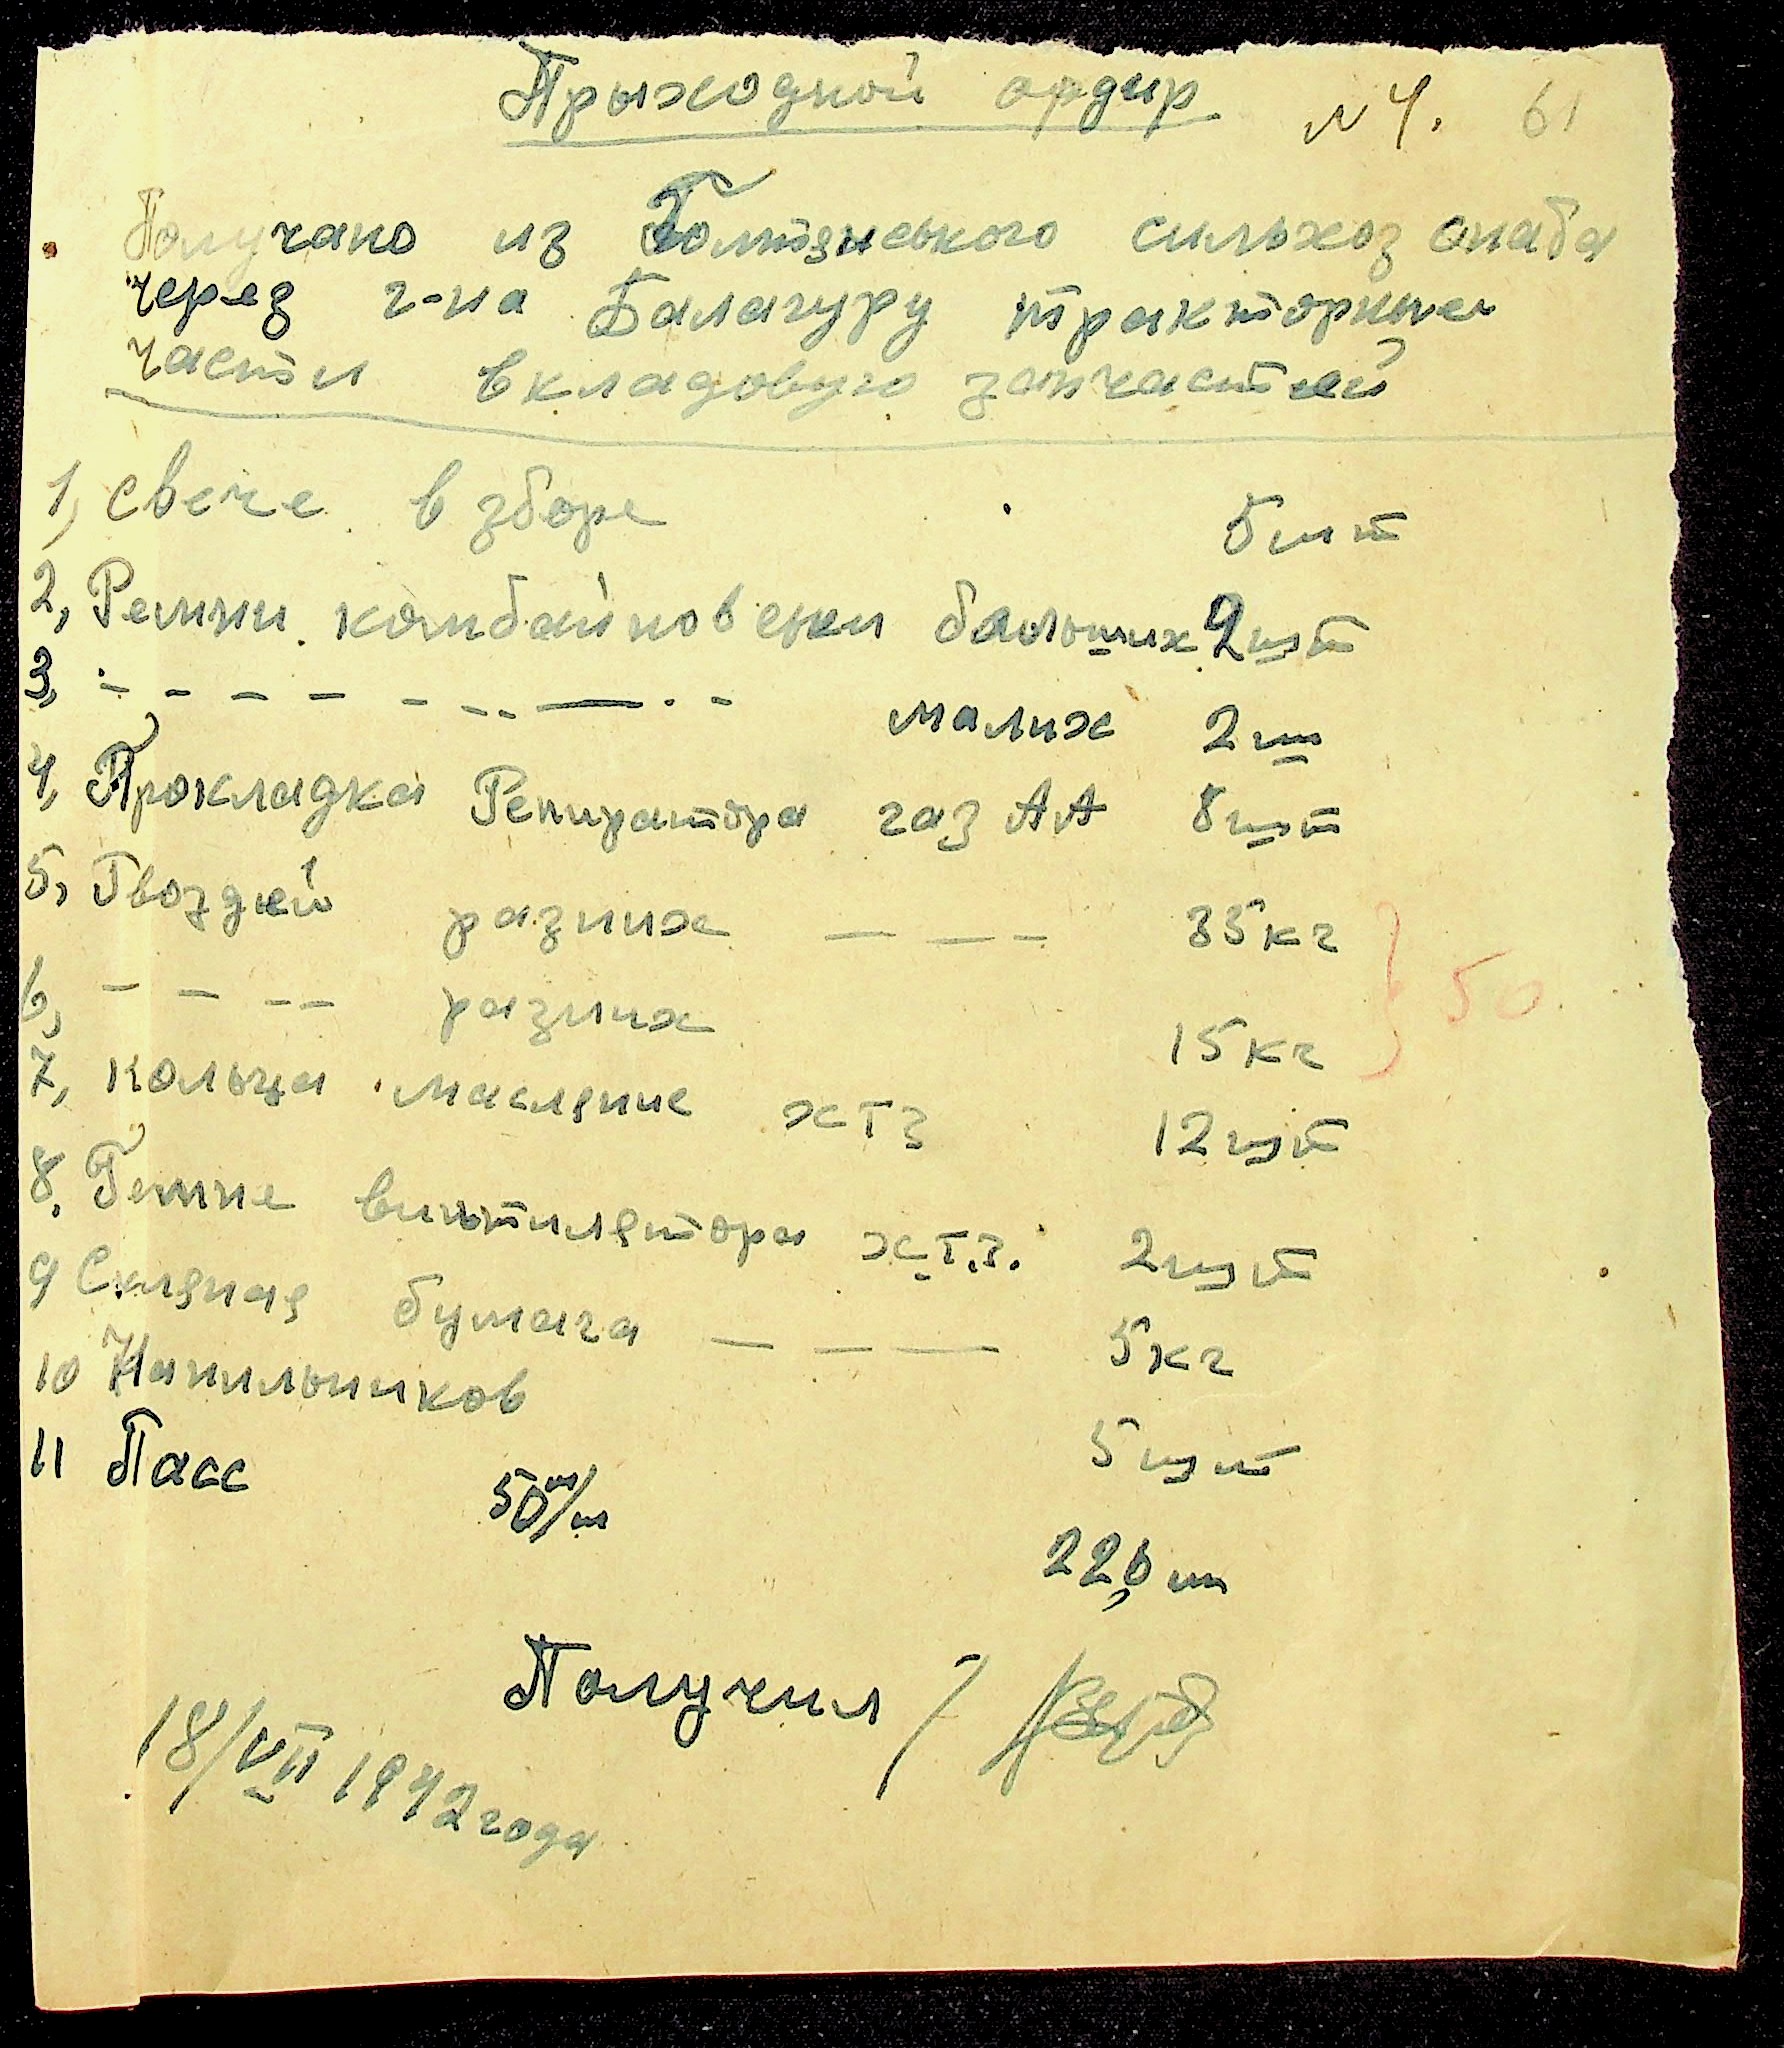 Прыходной ордир № 4. 61
Получано из Голтянського сильхоз снаба
через г-на Балагуру тракторные
части в кладовую запчастей
1, Свече в зборе 5 шт
2, Ремни комбайновськи больших 2 шт
3, - - - - - - - — - - малих 2 ш
4, Прокладка Репиратора газ АА 8 шт
5, Гвоздей разних — — - 35 кг
6, - - - - разних 15 кг } 50
7, Кольца масляние ХТЗ 12 шт
8. Ремне винтилятора Х.Т.З. 2 шт
9 Скляная бумага — — — 5 кг
10 Напильников 5 шт
11 Пасс 50 м/м 22,0 м
Получил /
18/VII 1942 года